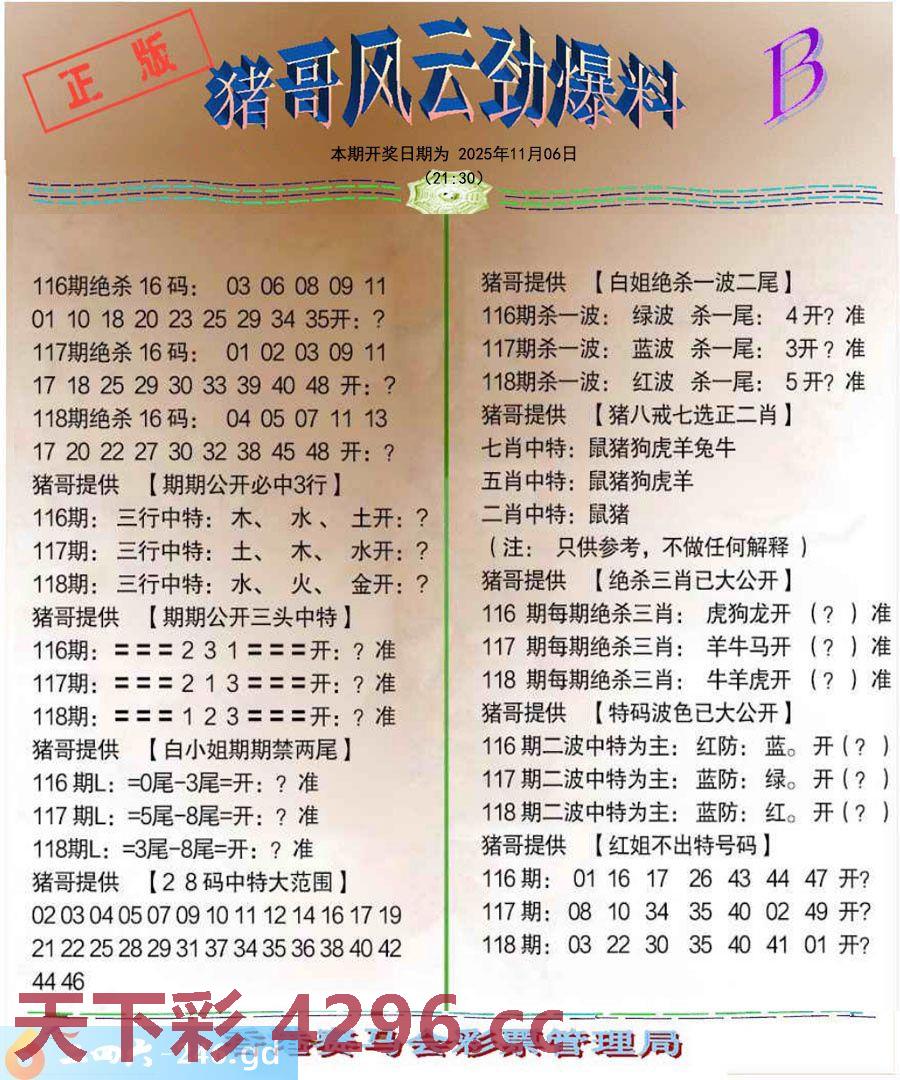 正版
猪哥风云劲爆料
B
本期开奖日期为 2025年11月06日
（21:30）
116期绝杀 16 码： 03 06 08 09 11
01 10 18 20 23 25 29 34 35开：?
117期绝杀 16 码： 01 02 03 09 11
17 18 25 29 30 33 39 40 48 开：?
118期绝杀 16 码： 04 05 07 11 13
17 20 22 27 30 32 38 45 48 开：?
猪哥提供 【期期公开必中3行】
116期： 三行中特： 木、 水 、 土开：?
117期： 三行中特： 土、 木、 水开：?
118期： 三行中特： 水、 火、 金开：?
猪哥提供 【期期公开三头中特】
116期：＝＝＝2 3 1＝＝＝开：? 准
117期：＝＝＝2 1 3＝＝＝开：? 准
118期：＝＝＝1 2 3＝＝＝开：? 准
猪哥提供 【白小姐期期禁两尾】
116 期L：=0尾-3尾=开：? 准
117 期L：=5尾-8尾=开：? 准
118期L：=3尾-8尾=开：? 准
猪哥提供 【2 8 码中特大范围】
02 03 04 05 07 09 10 11 12 14 16 17 19
21 22 25 28 29 31 37 34 35 36 38 40 42
44 46
猪哥提供 【白姐绝杀一波二尾】
116期杀一波： 绿波 杀一尾： 4 开? 准
117期杀一波： 蓝波 杀一尾： 3开 ? 准
118期杀一波： 红波 杀一尾： 5 开? 准
猪哥提供 【猪八戒七选正二肖】
七肖中特：鼠猪狗虎羊兔牛
五肖中特：鼠猪狗虎羊
二肖中特：鼠猪
（注： 只供参考，不做任何解释 ）
猪哥提供 【绝杀三肖已大公开】
116 期每期绝杀三肖： 虎狗龙开 （? ）准
117 期每期绝杀三肖： 羊牛马开 （? ）准
118 期每期绝杀三肖： 牛羊虎开 （? ）准
猪哥提供 【特码波色已大公开】
116 期二波中特为主：红防：蓝。开（? ）
117 期二波中特为主：蓝防：绿。开（? ）
118 期二波中特为主：蓝防：红。开（? ）
猪哥提供 【红姐不出特号码】
116 期： 01 16 17 26 43 44 47 开?
117 期： 08 10 34 35 40 02 49 开?
118 期： 03 22 30 35 40 41 01 开?
天下彩 4296.cc
马会彩票管理局